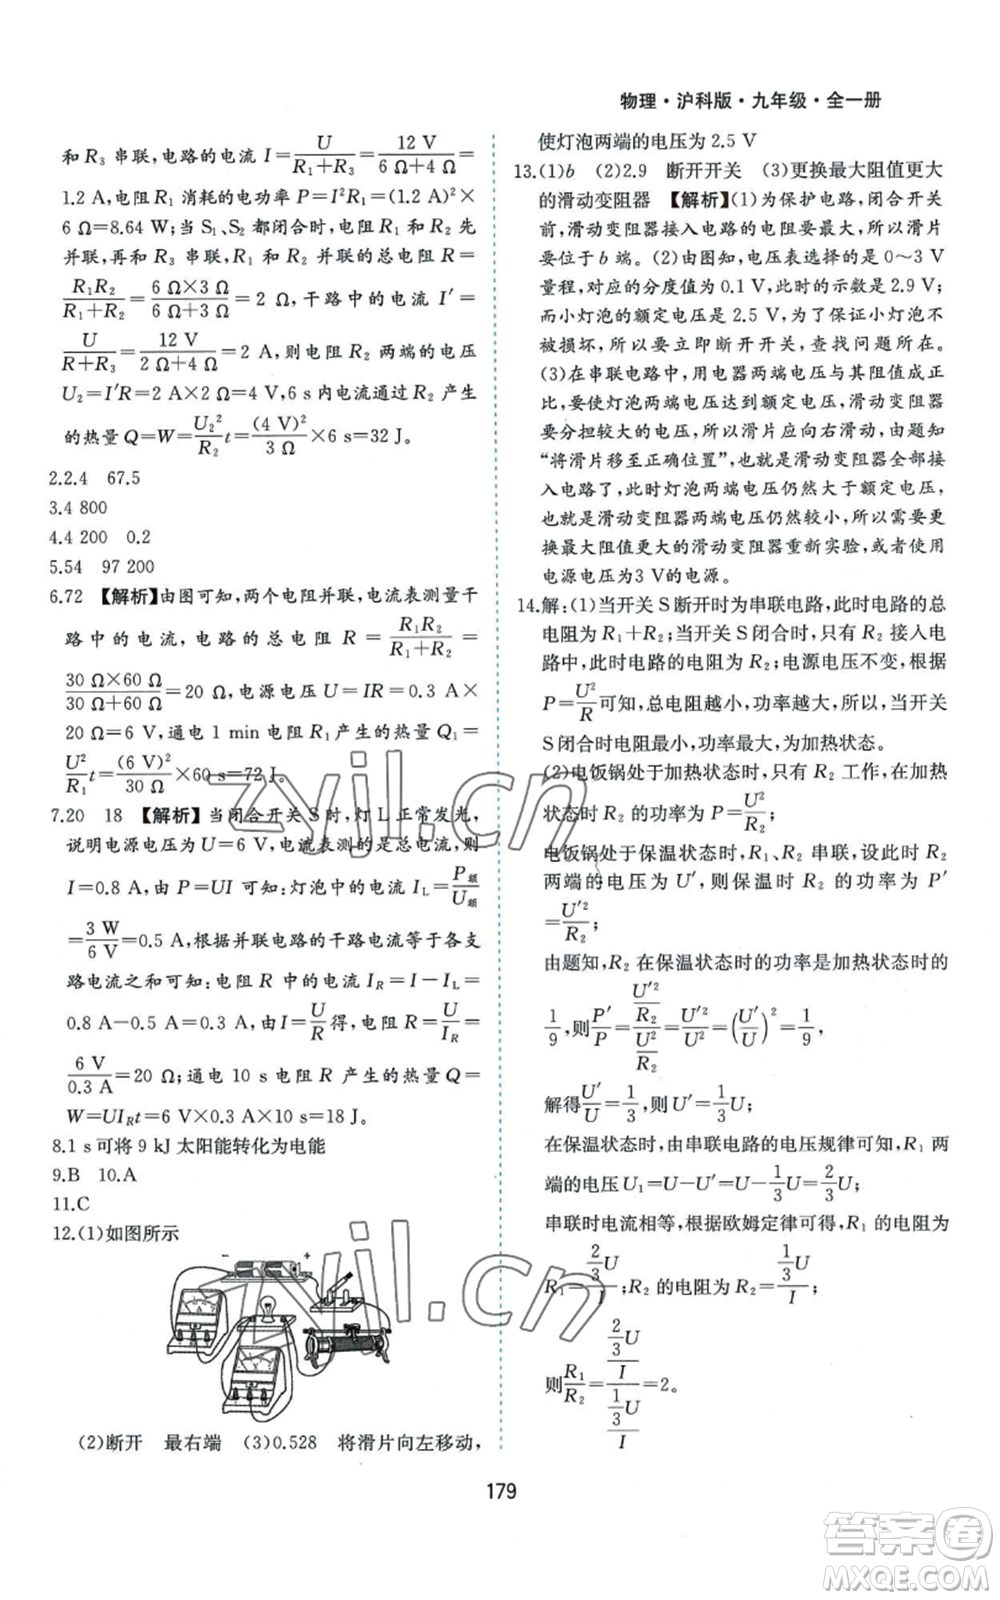 物理·沪科版·九年级·全一册
和 R₃ 串联,电路的电流 I=U/(R₁+R₃)=12 V/(6 Ω+4 Ω)=
1.2 A,电阻 R₁ 消耗的电功率 P=I²R₁=(1.2 A)²×
6 Ω=8.64 W;当 S₁、S₂ 都闭合时,电阻 R₁ 和 R₂ 先
并联,再和 R₃ 串联,R₁ 和 R₂ 并联的总电阻 R=
R₁R₂/(R₁+R₂)=(6 Ω×3 Ω)/(6 Ω+3 Ω)=2 Ω,干路中的电流 I′=
U/(R+R₃)=12 V/(2 Ω+4 Ω)=2 A,则电阻 R₂ 两端的电压
U₂=I′R=2 A×2 Ω=4 V,6 s内电流通过 R₂ 产生
的热量 Q=W=U₂²/R₂ t=(4 V)²/3 Ω×6 s=32 J。
2.2.4 67.5
3.4 800
4.4 200 0.2
5.54 97 200
6.72 【解析】由图可知,两个电阻并联,电流表测量干
路中的电流,电路的总电阻 R=R₁R₂/(R₁+R₂)=
(30 Ω×60 Ω)/(30 Ω+60 Ω)=20 Ω,电源电压 U=IR=0.3 A×
20 Ω=6 V,通电 1 min 电阻 R₁产生的热量 Q₁=
U²/R₁ t=(6 V)²/30 Ω×60 s=72 J。
7.20 18 【解析】当闭合开关 S 时,灯 L 正常发光,
说明电源电压为 U=6 V,电流表测的是总电流,则
I=0.8 A,由 P=UI 可知:灯泡中的电流 I_L=P额/U额
=3 W/6 V=0.5 A,根据并联电路的干路电流等于各支
路电流之和可知:电阻 R 中的电流 I_R=I-I_L=
0.8 A-0.5 A=0.3 A,由 I=U/R得,电阻 R=U/I_R=
6 V/0.3 A=20 Ω;通电 10 s 电阻 R 产生的热量 Q=
W=UI_R t=6 V×0.3 A×10 s=18 J。
8.1 s可将 9 kJ 太阳能转化为电能
9.B 10.A
11.C
12.(1)如图所示
- +
(2)断开 最右端 (3)0.528 将滑片向左移动,
使灯泡两端的电压为 2.5 V
13.(1)b (2)2.9 断开开关 (3)更换最大阻值更大
的滑动变阻器 【解析】(1)为保护电路,闭合开关
前,滑动变阻器接入电路的电阻要最大,所以,滑片
要位于 b 端。(2)由图知,电压表选择的 0～3 V
量程,对应的分度值为 0.1 V,此时的示数是 2.9 V;
而小灯泡的额定电压是 2.5 V,为了保证小灯泡不
被损坏,所以要立即断开开关,以保护小灯泡。
(3)在串联电路中,用电器两端电压与其阻值成正
比,要使灯泡两端电压达到额定电压,滑动变阻器
要分担较大的电压,所以滑片应向右滑动,当
“将滑片移至正确位置”,也就是滑动变阻器全部接
入电路了,此时灯泡两端电压仍然大于额定电压,
也就是滑动变阻器两端电压仍然较小,所以需要更
换最大阻值更大的滑动变阻器重新实验,或者使用
电源电压为3 V的电源。
14.解:(1)当开关 S断开时为串联电路,此时电路的总
电阻为 R₁+R₂;当开关 S闭合时,只有 R₂ 接入电
路中,此时电路的电阻为 R₂;电源电压不变,根据
P=U²/R可知,总电阻越小,功率越大,所以,当开关
S闭合时电阻最小,功率最大,为加热状态。
(2)电饭锅处于加热状态时,只有 R₂ 工作,在加热
状态时 R₂ 的功率为 P=U²/R₂;
电饭锅处于保温状态时,R₁、R₂ 串联,设此时 R₂
两端的电压为 U′,则保温时 R₂ 的功率为 P′
=U′²/R₂;
由题知,R₂ 在保温状态时的功率是加热状态时的
1/9,则P′/P=(U′²/R₂)/(U²/R₂)=U′²/U²=(U′/U)²=1/9,
解得U′/U=1/3,则 U′=1/3U;
在保温状态时,由串联电路的电压规律可知,R₁ 两
端的电压 U₁=U-U′=U-1/3U=2/3U;
串联时电流相等,根据欧姆定律可得,R₁ 的电阻为
R₁=(2/3U)/I;R₂的电阻为 R₂=(1/3U)/I;
则R₁/R₂=((2/3U)/I)/((1/3U)/I)=2。
179
zyjl.cn
zyjl.cn
答案圈
MXQE.COM